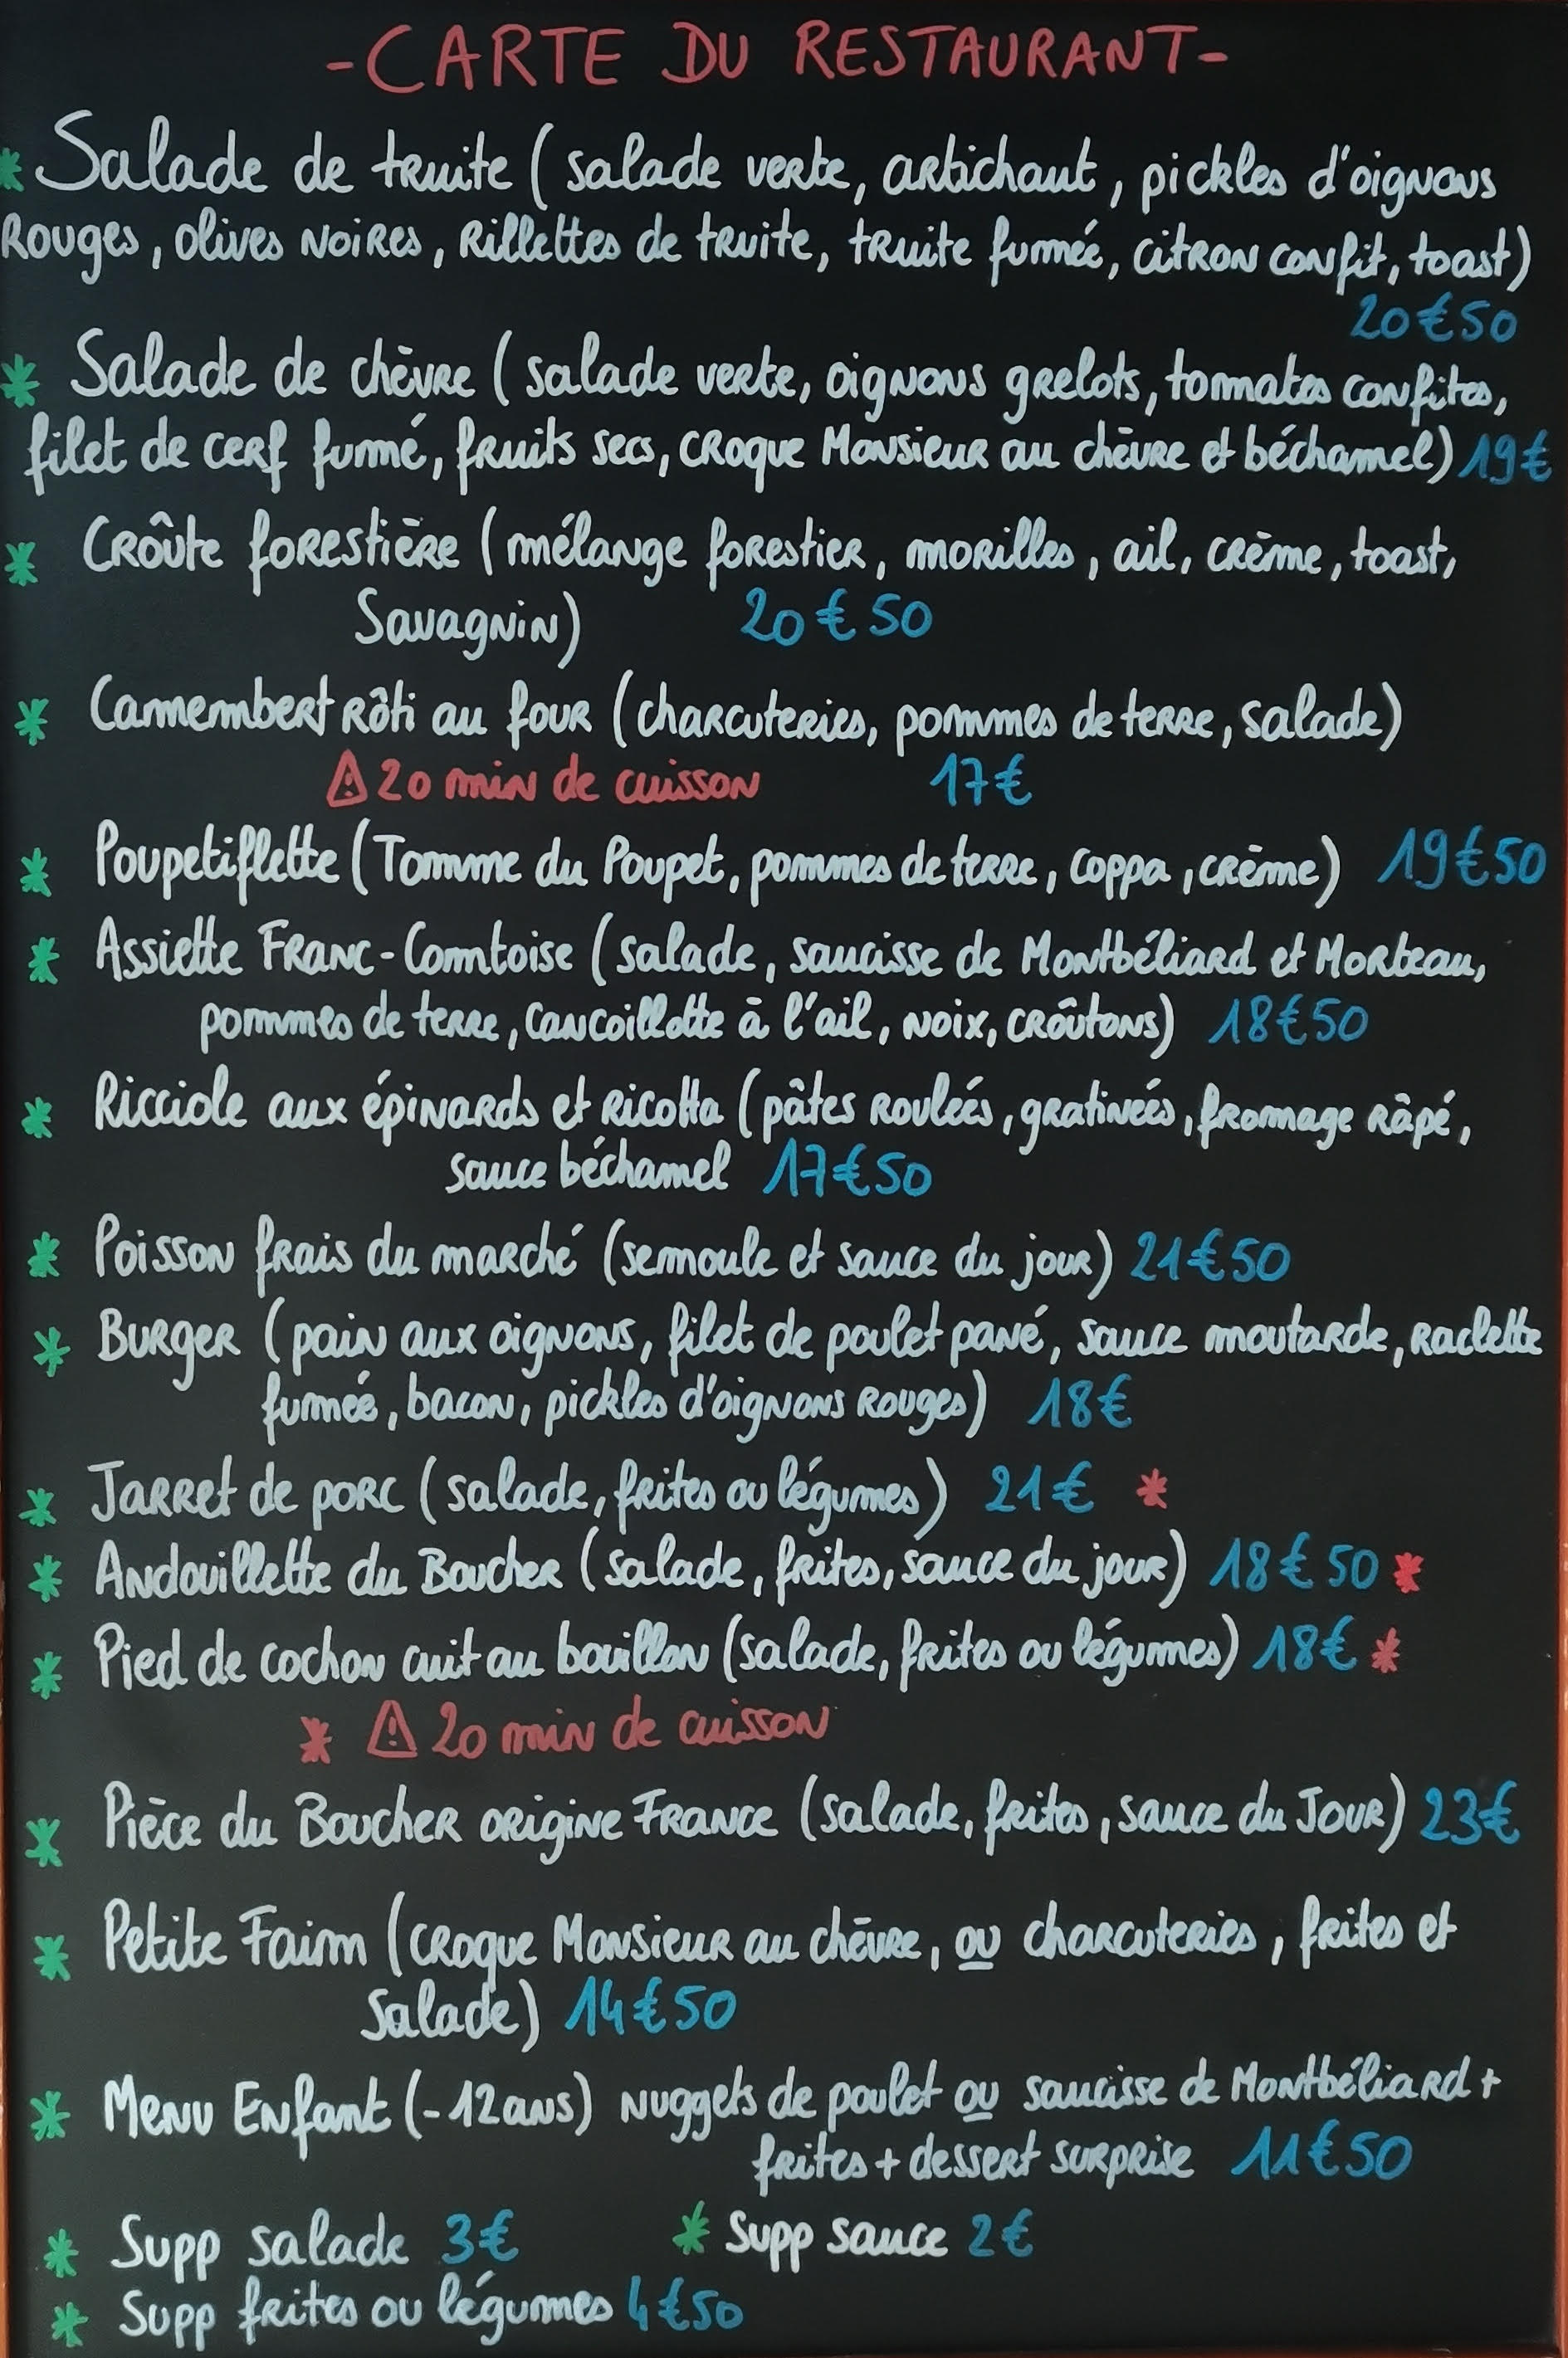 -CARTE DU RESTAURANT-
* Salade de truite (salade verte, artichaut, pickles d'oignons
Rouges, olives noires, Rillettes de truite, truite fumée, citron confit, toast)
20€50
* Salade de chèvre (salade verte, oignons grelots, tomates confites,
filet de cerf fumé, fruits secs, croque Monsieur au chèvre et béchamel) 19€
* Croûte forestière (mélange forestier, morilles, ail, crème, toast,
Savagnin) 20€50
* Camembert Rôti au four (charcuteries, pommes de terre, salade)
⚠ 20 min de cuisson 17€
* Poupetiflette (Tomme du Poupet, pommes de terre, coppa, crème) 19€50
* Assiette Franc-Comtoise (salade, saucisse de Montbéliard et Morteau,
pommes de terre, Cancoillotte à l'ail, noix, croûtons) 18€50
* Ricciole aux épinards et Ricotta (pâtes roulées, gratinées, fromage râpé,
sauce béchamel 17€50
* Poisson frais du marché (semoule et sauce du jour) 21€50
* Burger (pain aux oignons, filet de poulet pané, sauce moutarde, raclette
fumée, bacon, pickles d'oignons rouges) 18€
* Jarret de porc (salade, frites ou légumes) 21€ *
* Andouillette du Boucher (salade, frites, sauce du jour) 18€50 *
* Pied de cochon cuit au bouillon (salade, frites ou légumes) 18€ *
* ⚠ 20 min de cuisson
* Pièce du Boucher origine France (salade, frites, sauce du Jour) 23€
* Petite Faim (croque Monsieur au chèvre, ou charcuteries, frites et
salade) 14€50
* Menu Enfant (-12ans) nuggets de poulet ou saucisse de Montbéliard +
frites + dessert surprise 11€50
* Supp salade 3€ * Supp sauce 2€
* Supp frites ou légumes 4€50